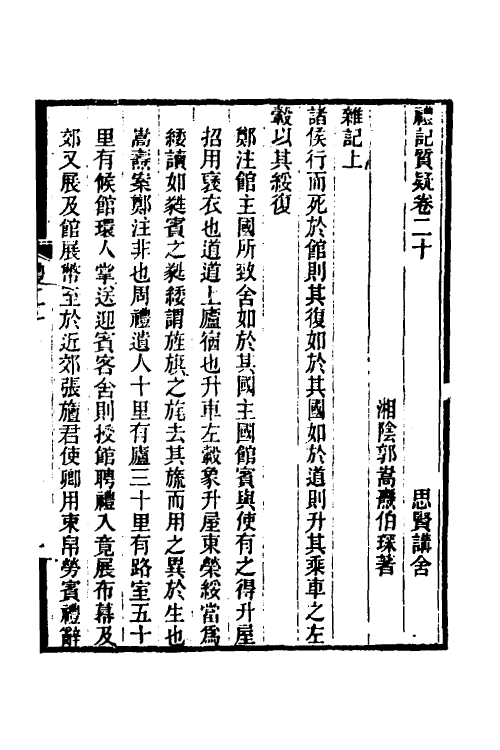 禮記質疑卷二十　思賢講舍
湘陰郭嵩燾伯琛著
雜記上
諸侯行而死於館則其復如於其國如於道則升其乘車之左
轂以其綏復
鄭注館主國所致舍如於其國主國館賓與使有之得升屋
招用褒衣也道道上廬宿也升車左轂象升屋東榮綏當爲
緌讀如蕤賓之蕤緌謂旌旗之旄去其旒而用之異於生也
嵩燾案鄭注非也周禮遺人十里有廬三十里有路室五十
里有候館環人掌送迎賓客舍則授館聘禮入竟展布幕及
郊又展及館展幣至於近郊張旜君使卿用束帛勞賓禮辭